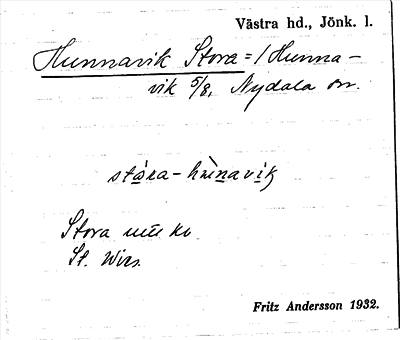 Västra hd., Jönk. l.
Hunnavik Stora = / Hunna-
vik 5/8, Nydala sn.
stóra-hùnavik
Stora
St. Wies.
Fritz Andersson 1932.